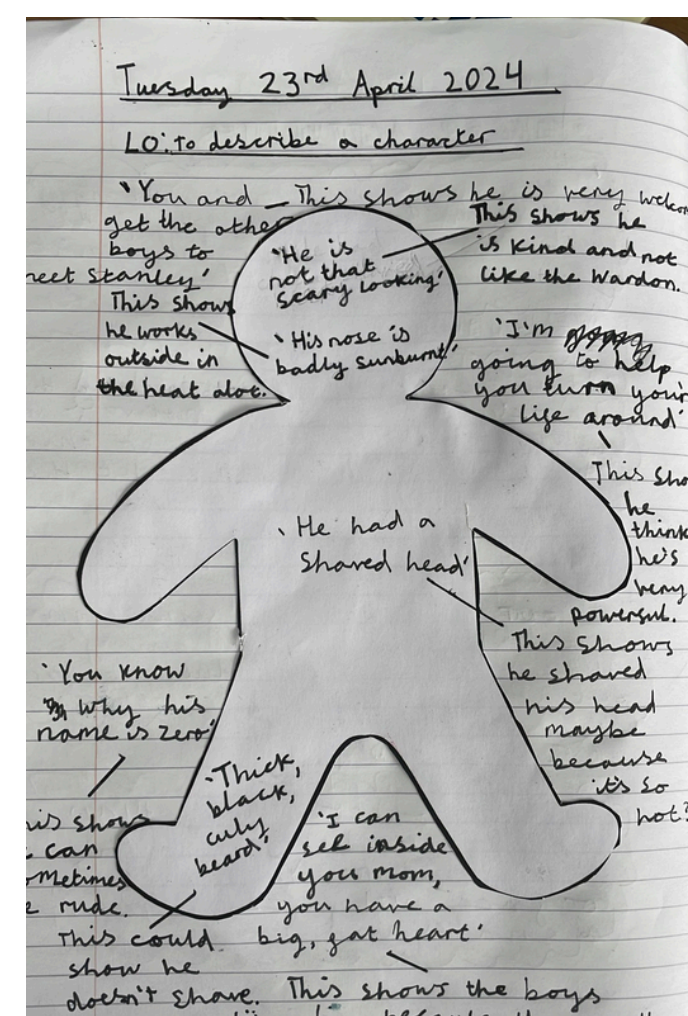 Tuesday 23rd April 2024
LO: to describe a character
'You and _ This shows he is very
get the other
boys to
Stanley'
This shows
he is kind and not
like the Wardon.
'He is
not that
scary looking'
This shows
he works
outside in
the heat alot.
'His nose is
badly sunburnt.'
'I'm
going to help
you turn your
life around'
This
he
think
he's
very
powerful.
'He had a
Shaved head'
This shows
he shaved
his head
maybe
because
it's so
hot?
'You know
why his
name is Zero'
shows
can
rude.
'Thick,
black,
culy
beard'
This could
show he
doesn't shave.
'I can
see inside
you mom,
you have a
big, fat heart'
This shows the boys